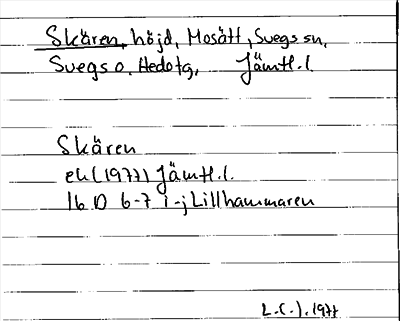 Skären, höjd, Mosätt, Svegs sn,
Svegs o. Hedetg, Jämtl. l.
Skären
ek (1977) Jämtl. l.
16 D 6-7 i-j Lillhammaren
1977